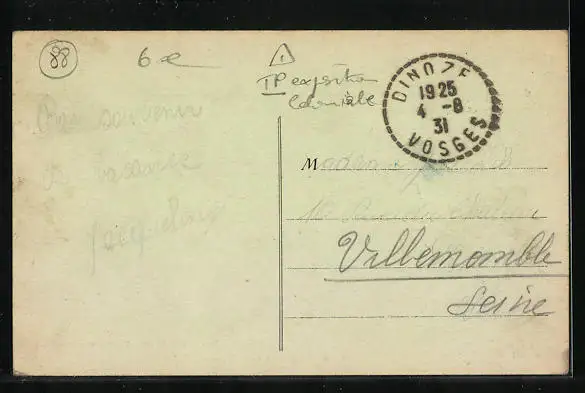 88
6e
1
TP exposition
Coloniale
DINOZE
1925
4 -8
31
VOSGES
Bon souvenir
de vacances
Jacqueline
Madame
Villemomble
Seine